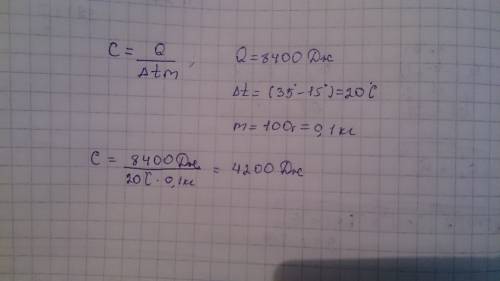 C = Q / Δtm, Q = 8400 Дж
Δt = (35° - 15°) = 20°C
m = 100г = 0,1кг
C = 8400 Дж / 20°C · 0,1кг = 4200 Дж